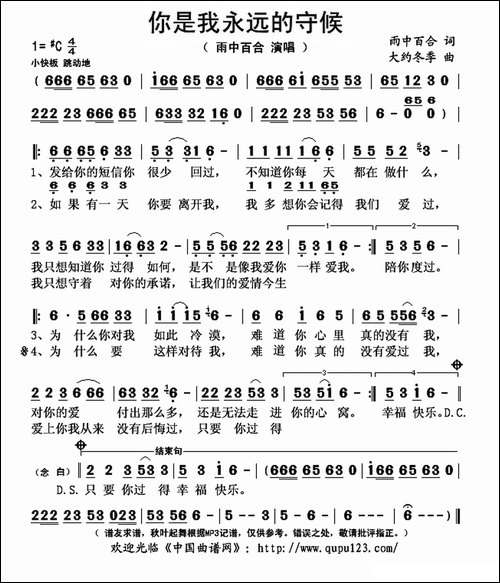 你是我永远的守候
1=♯C 4/4
（ 雨中百合 演唱 ）
雨中百合 词
小快板 跳动地
大约冬季 曲
( 666 65 63 0 | i66 65 63 0 | 666 65 63 0 | 65 12 30 |
222 23 666 65 | 633 32 16 0 | 222 23 53 56 | 6 - 0 0 ) |
6 6 65 6 33 | 53 31 6 - | 11 11 1 66 1 | 55 52 3 - |
1、发给你的短信你 很少 回过， 不知道你每 天 都在 做什 么，
2、如 果 有一 天 你要 离开我， 我 多 想你会记得 我们 爱 过，
3 3 5 6 33 | 16 63 2 - | 55 56 22 23 | 53 16 - :‖ 5 5 56 - |
我只想知道你 过得 如何， 是不 是像我爱你 一样 爱我。 陪你度过。
我只想守着 对你的承诺， 让我们的爱情今生
3、为 什么你对我 如此 冷 漠， 难 道你 心里 真的没有 我，
4、为 什么 要 这样对待 我， 难 道你 真的 没有爱过 我，
对你的 爱 付出 那么 多， 还是 无法走 进 你的 心 窝。 幸福 快乐。D.C.
爱上你 我从来 没有后悔 过， 只要 你过 得
结束句
( 念 白 ) ‖ 2 2 3 53 3 | 5 3 i 6 - | ( 666 65 63 0 | i66 65 63 0 |
D.S. 只 要 你过 得 幸 福 快乐。
222 23 53 023 | 53 56 6 - | 5 - 3 - | 5 - 6 - | 6 - - 0 ) ‖
（ 谱友求谱，秋叶起舞根据MP3记谱，仅供参考。错误之处，敬请批评指正。）
欢迎光临《中国曲谱网》：http://www.qupu123.com/